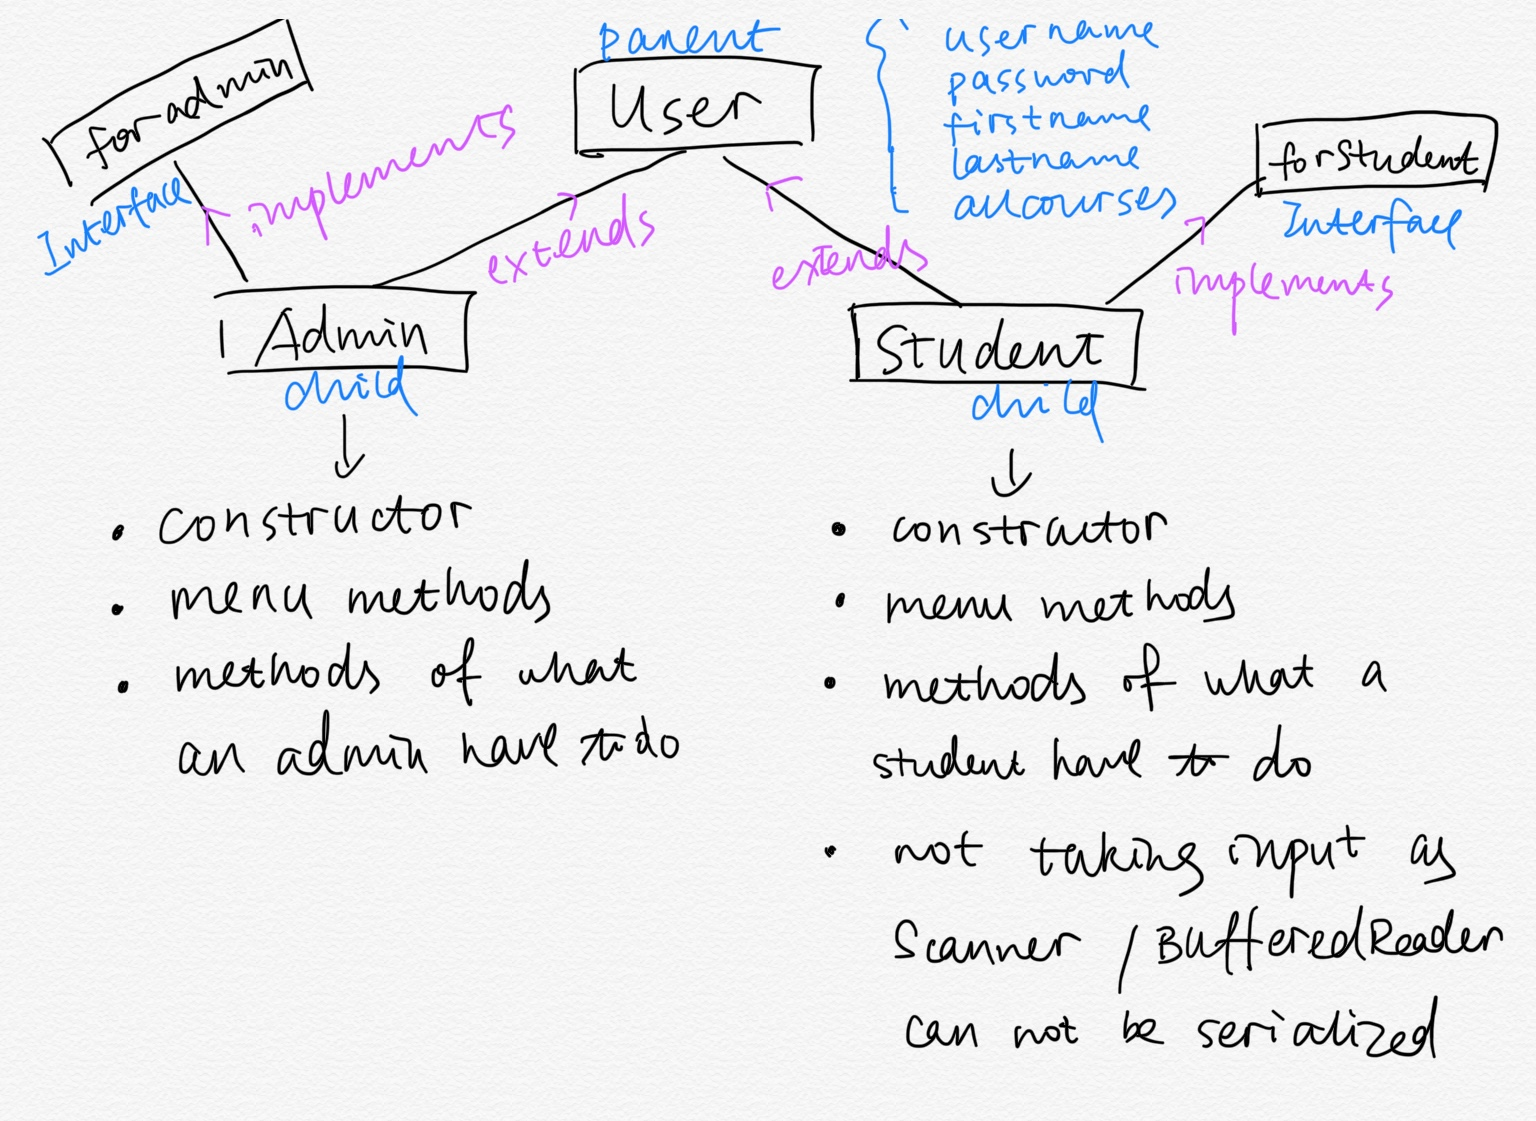 for-admin
Interface
implements
parent
User
extends
extends
username
password
firstname
lastname
allcourses
forStudent
Interface
implements
Admin
child
Student
child
• constructor
• menu methods
• methods of what
an admin have to do
• constructor
• menu methods
• methods of what a
student have to do
• not taking input as
Scanner / BufferedReader
can not be serialized